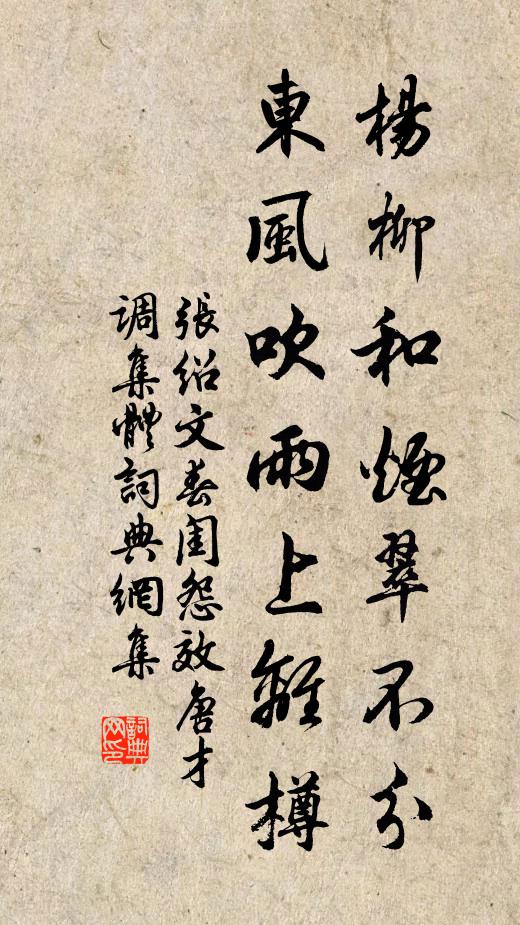 楊柳和煙翠不分
東風吹雨上離樽
張紹文春閨怨效唐才
调集體詞典網集
詞典
网印